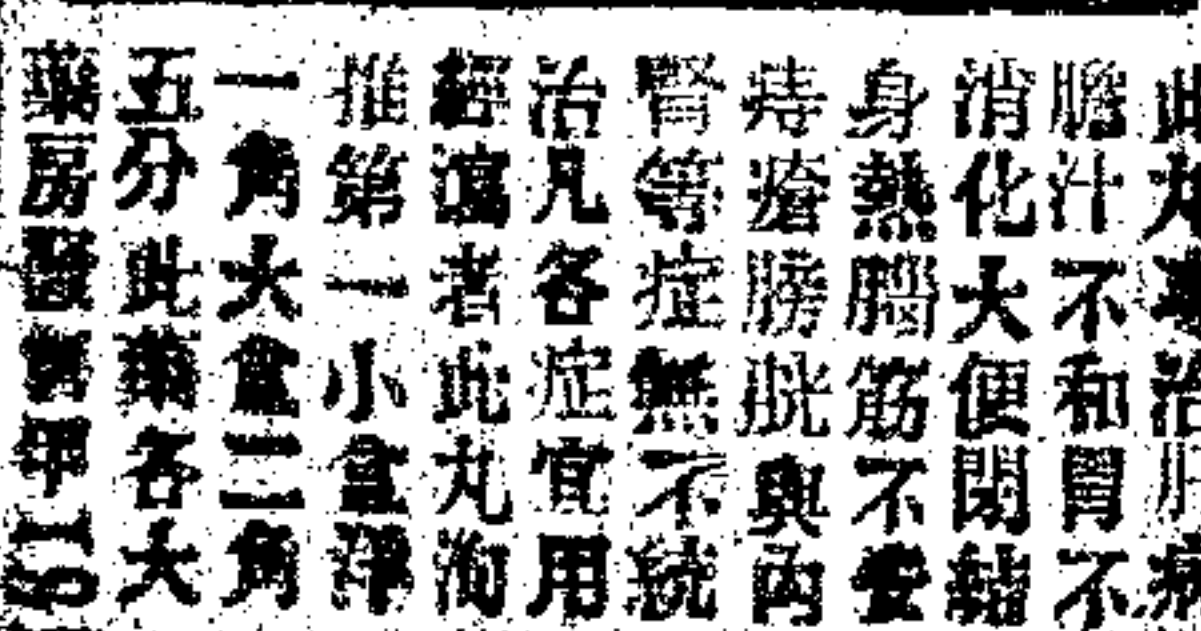 此丸專治肝病
膽汁不和胃不
消化大便閉結
身熱腦筋不安
痔瘡膀胱與內
腎等症無不統
治凡各症宜用
輕瀉者此丸洵
推第一小盒洋
一角大盒二角
五分此藥各大
藥房